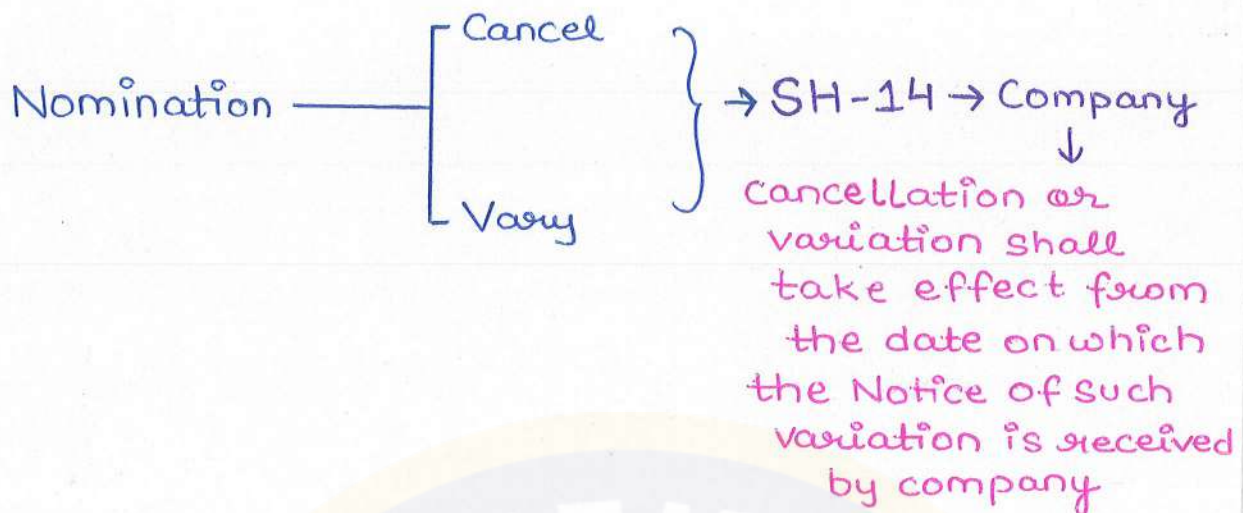 Cancel
Nomination → SH-14 → Company
↓
Vary
cancellation or
variation shall
take effect from
the date on which
the Notice of such
variation is received
by company